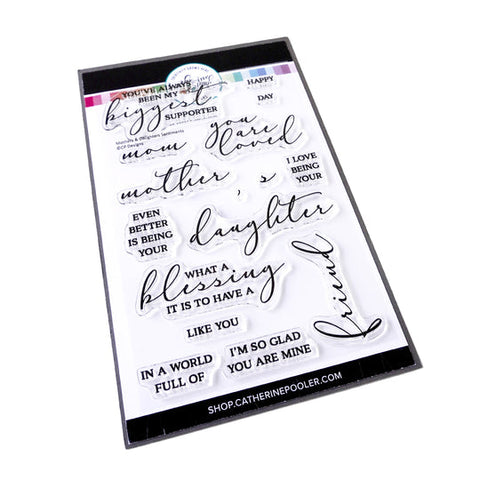 YOU'VE ALWAYS
BEEN MY
biggest
SUPPORTER
HAPPY
DAY
Mothers & Daughters Sentiments
©CP Designs
mom
you
are
loved
mother
's
I LOVE
BEING
YOUR
EVEN
BETTER
IS BEING
YOUR
daughter
WHAT A
blessing
IT IS TO HAVE A
friend
LIKE YOU
IN A WORLD
FULL OF
I'M SO GLAD
YOU ARE MINE
SHOP.CATHERINEPOOLER.COM